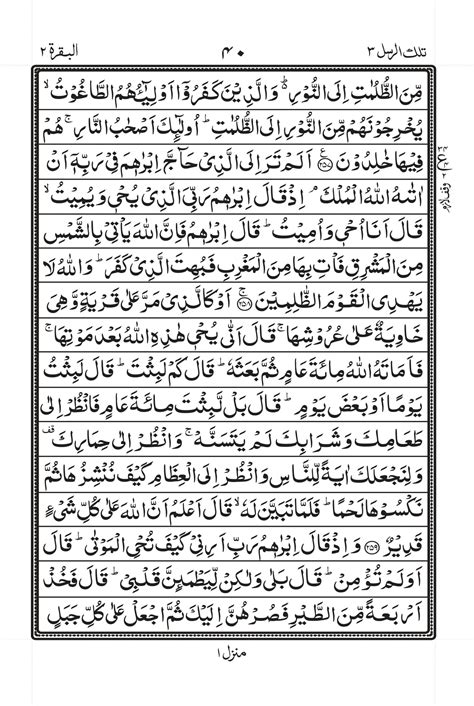 تلك الرسل ٣ ٤٠ البقرة ٢
مِّنَ الظُّلُمٰتِ اِلَى النُّوْرِ۬ؕ وَالَّذِیْنَ كَفَرُوْۤا اَوْلِیٰٓـُٔهُمُ الطَّاغُوْتُ ۙ
یُخْرِجُوْنَهُمْ مِّنَ النُّوْرِ اِلَى الظُّلُمٰتِ ؕ اُولٰٓىِٕكَ اَصْحٰبُ النَّارِ ۚ هُمْ
فِیْهَا خٰلِدُوْنَ ۟﴿۲۵۷﴾ اَلَمْ تَرَ اِلَى الَّذِیْ حَآجَّ اِبْرٰهٖمَ فِیْ رَبِّهٖۤ اَنْ
اٰتٰىهُ اللّٰهُ الْمُلْكَ ۘ اِذْ قَالَ اِبْرٰهٖمُ رَبِّیَ الَّذِیْ یُحْیٖ وَیُمِیْتُ ۙ
قَالَ اَنَا اُحْیٖ وَاُمِیْتُ ؕ قَالَ اِبْرٰهٖمُ فَاِنَّ اللّٰهَ یَاْتِیْ بِالشَّمْسِ
مِنَ الْمَشْرِقِ فَاْتِ بِهَا مِنَ الْمَغْرِبِ فَبُهِتَ الَّذِیْ كَفَرَ ؕ وَاللّٰهُ لَا
یَهْدِی الْقَوْمَ الظّٰلِمِیْنَ ﴿۲۵۸﴾ۚ اَوْ كَالَّذِیْ مَرَّ عَلٰی قَرْیَةٍ وَّهِیَ
خَاوِیَةٌ عَلٰی عُرُوْشِهَا ۚ قَالَ اَنّٰی یُحْیٖ هٰذِهِ اللّٰهُ بَعْدَ مَوْتِهَا ۚ
فَاَمَاتَهُ اللّٰهُ مِائَةَ عَامٍ ثُمَّ بَعَثَهٗ ؕ قَالَ كَمْ لَبِثْتَ ؕ قَالَ لَبِثْتُ
یَوْمًا اَوْ بَعْضَ یَوْمٍ ؕ قَالَ بَلْ لَّبِثْتَ مِائَةَ عَامٍ فَانْظُرْ اِلٰی
طَعَامِكَ وَشَرَابِكَ لَمْ یَتَسَنَّهْ ۚ وَانْظُرْ اِلٰی حِمَارِكَ قف
وَلِنَجْعَلَكَ اٰیَةً لِّلنَّاسِ وَانْظُرْ اِلَی الْعِظَامِ كَیْفَ نُنْشِزُهَا ثُمَّ
نَكْسُوْهَا لَحْمًا ؕ فَلَمَّا تَبَیَّنَ لَهٗ ۙ قَالَ اَعْلَمُ اَنَّ اللّٰهَ عَلٰی كُلِّ شَیْءٍ
قَدِیْرٌ ﴿۲۵۹﴾ وَاِذْ قَالَ اِبْرٰهٖمُ رَبِّ اَرِنِیْ كَیْفَ تُحْیِ الْمَوْتٰی ؕ قَالَ
اَوَلَمْ تُؤْمِنْ ؕ قَالَ بَلٰی وَلٰكِنْ لِّیَطْمَىِٕنَّ قَلْبِیْ ؕ قَالَ فَخُذْ
اَرْبَعَةً مِّنَ الطَّیْرِ فَصُرْهُنَّ اِلَیْكَ ثُمَّ اجْعَلْ عَلٰی كُلِّ جَبَلٍ
منزل ١